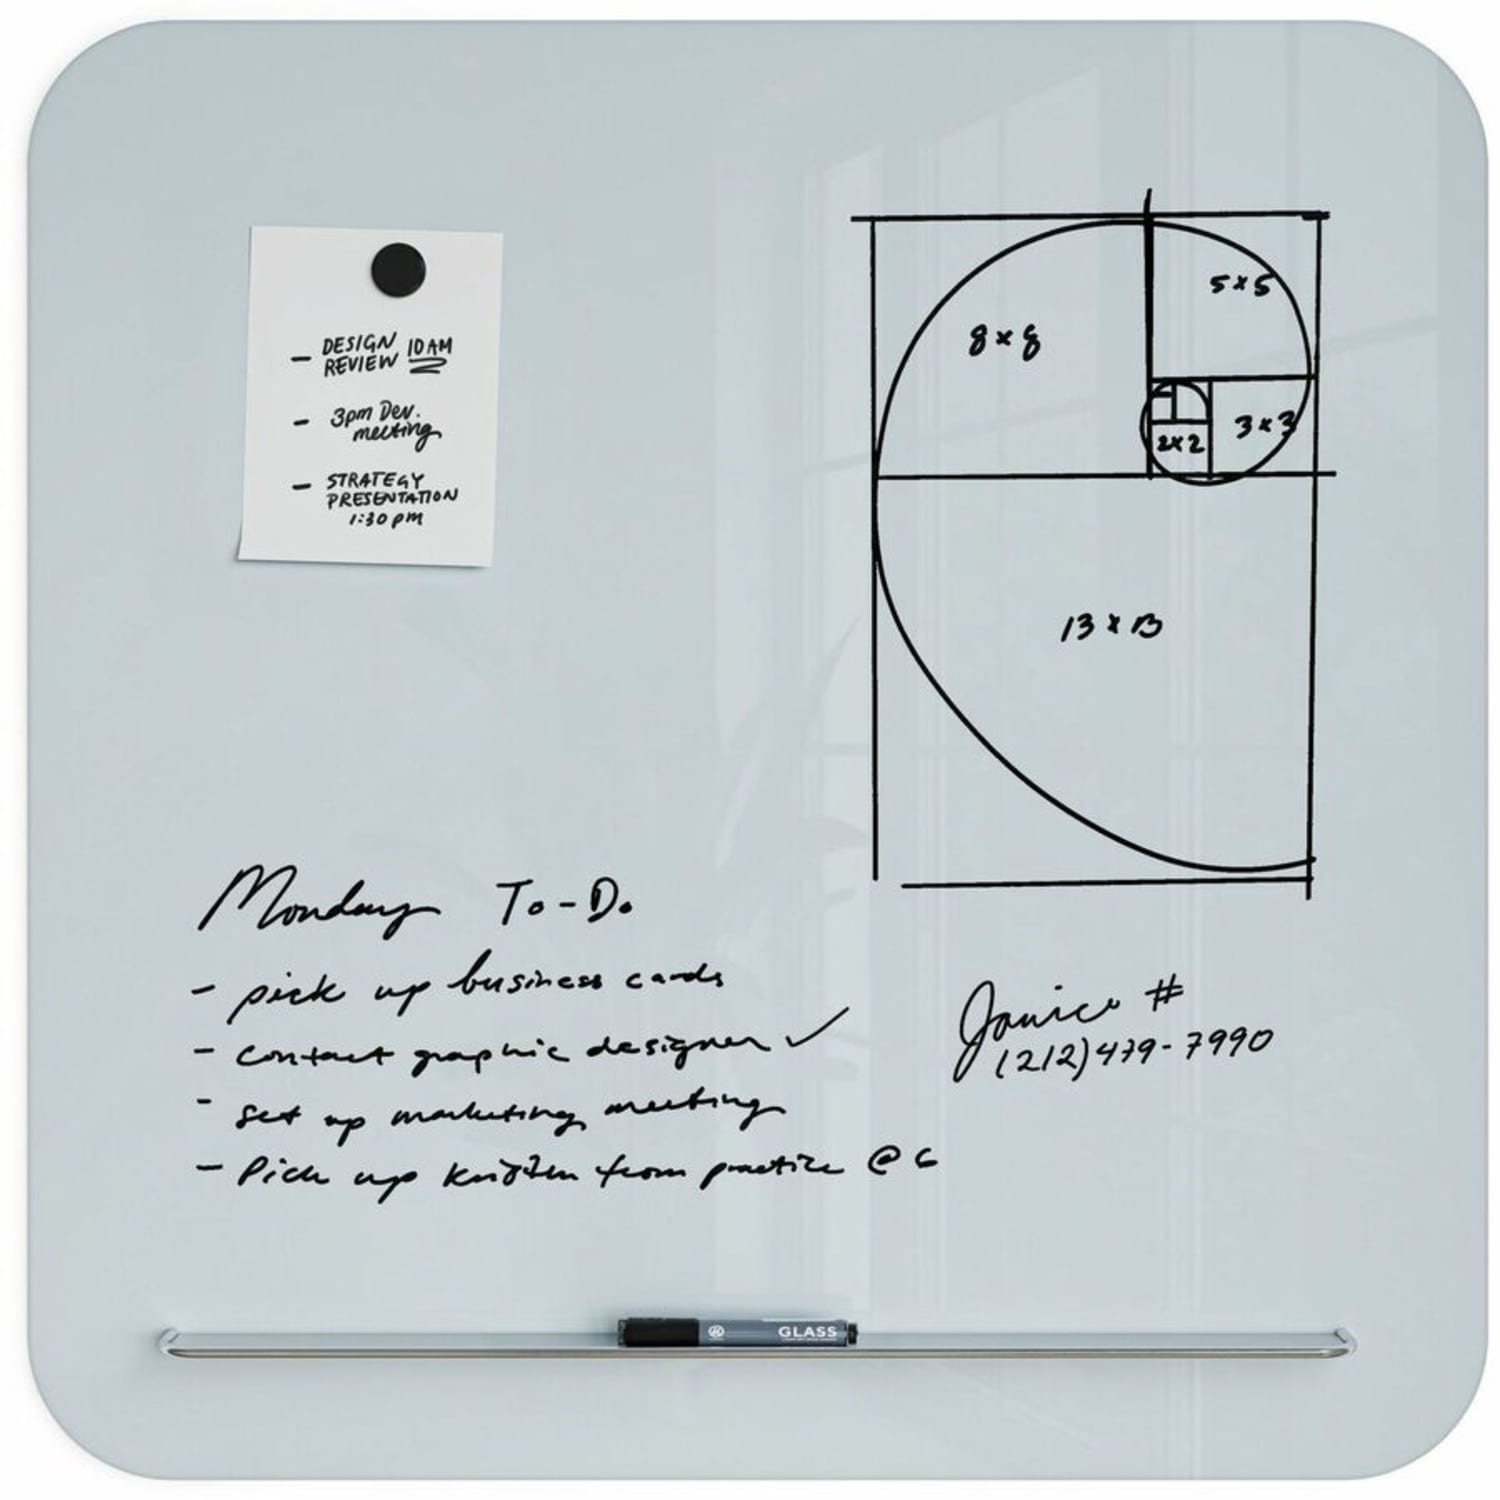 - DESIGN
REVIEW 10AM
- 3pm Dev.
meeting
- STRATEGY
PRESENTATION
1:30 pm
5x5
8x8
3x3
2x2
13x13
Monday To-Do
- pick up business cards
- contact graphic designer ✓
- set up marketing meeting
- Pick up Kristen from practice @ 6
Janice #
(212) 479-7990
GLASS